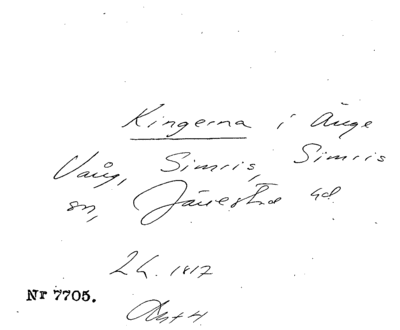 Kingerna i Änge
Vång, Simris, Simris
sn, Järrestad hd
2h. 1817
Nr 7705.